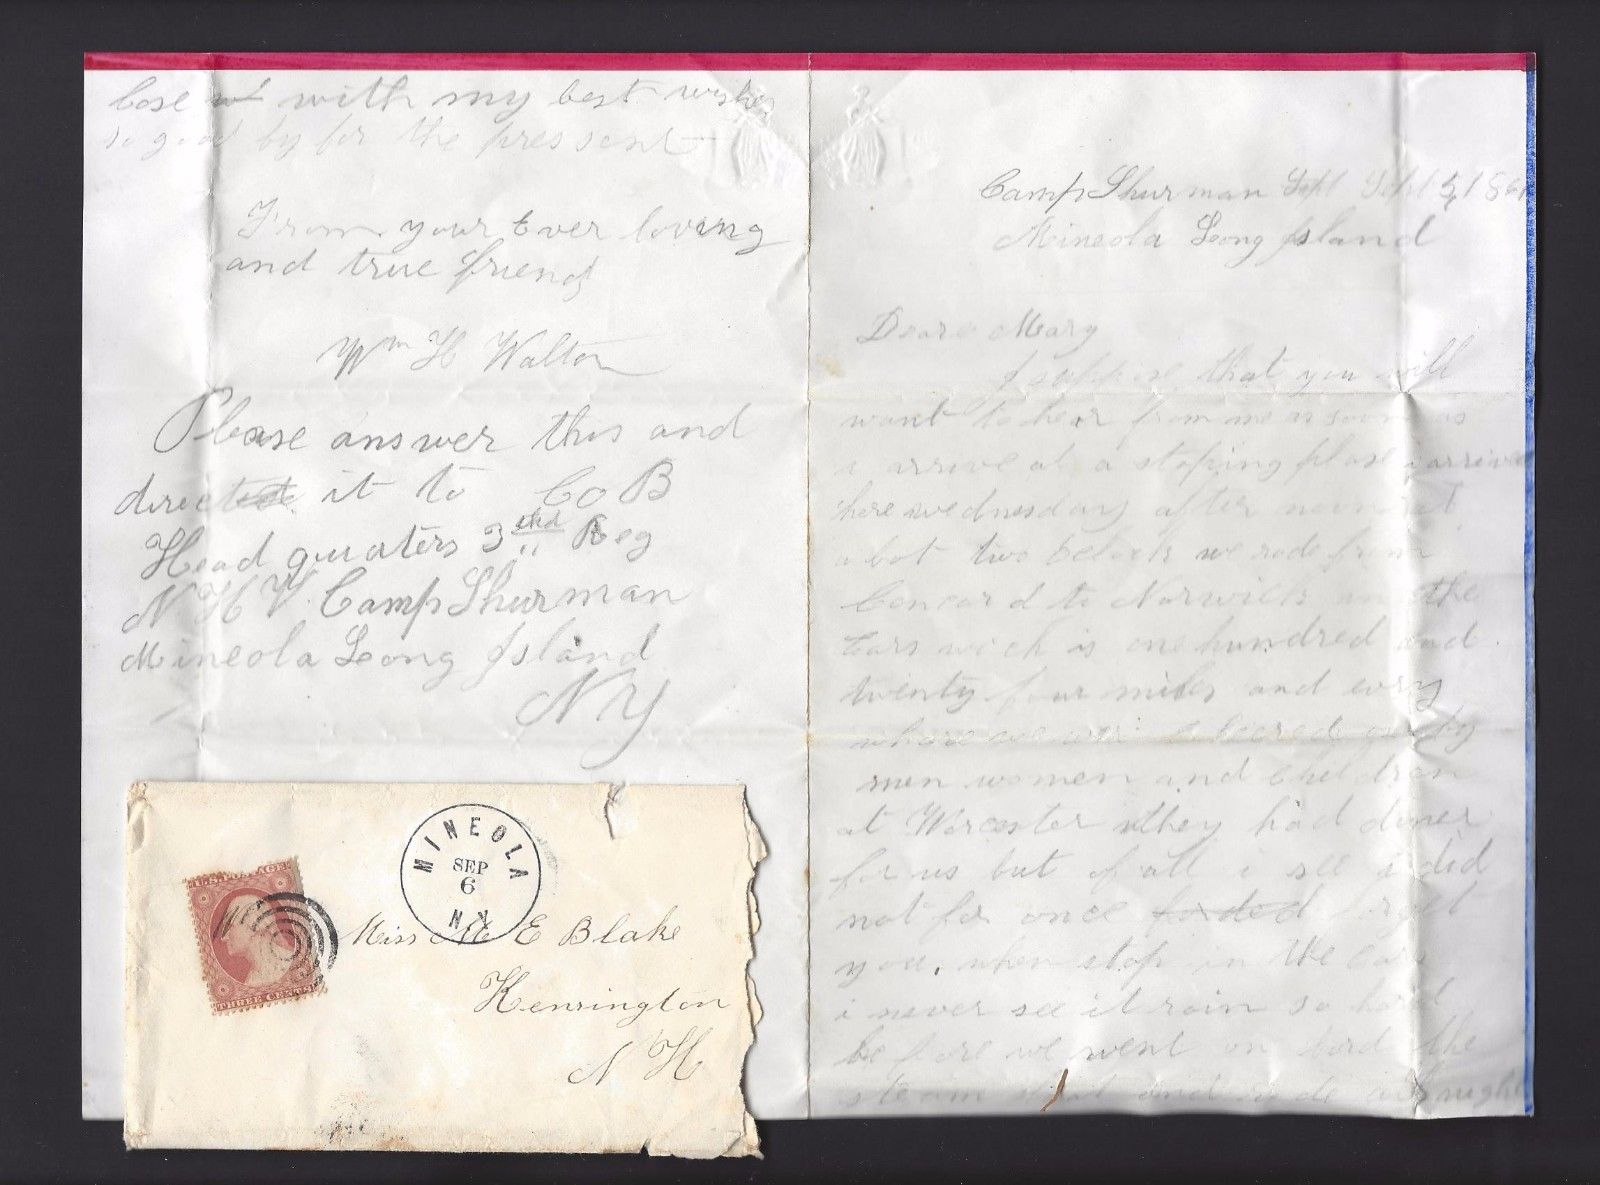 Close with my best wishes
so good by for the pressent
From your Ever loving
and true friend
Wm H Walton
Please answer this and
direct it to Co B
Head quraters 3thd Reg
N H V. Camp Shurman
Mineola Long Island
NY
Camp Shurman Sept Sept 5, 1861
Mineola Long Island
Deare Mary
I suppose that you will
want to hear from me as soon as
i arrive at a stoping plase i arrived
here wednesday after noon at
abot two oclock we rode from
Concord to Norwich in the
Cars wich is one hundred and
twenty four miles and every
whare we wer cheered by
men women and Children
at Worcester they had diner
for us but of all i see i did
not for once forget
you. when stop in the Cars
i never see it rain so hard
before we went on bord the
steam and rode all night
U.S. POSTAGE
THREE CENTS
MINEOLA
SEP
6
N.Y.
Miss M E Blake
Kensington
N H